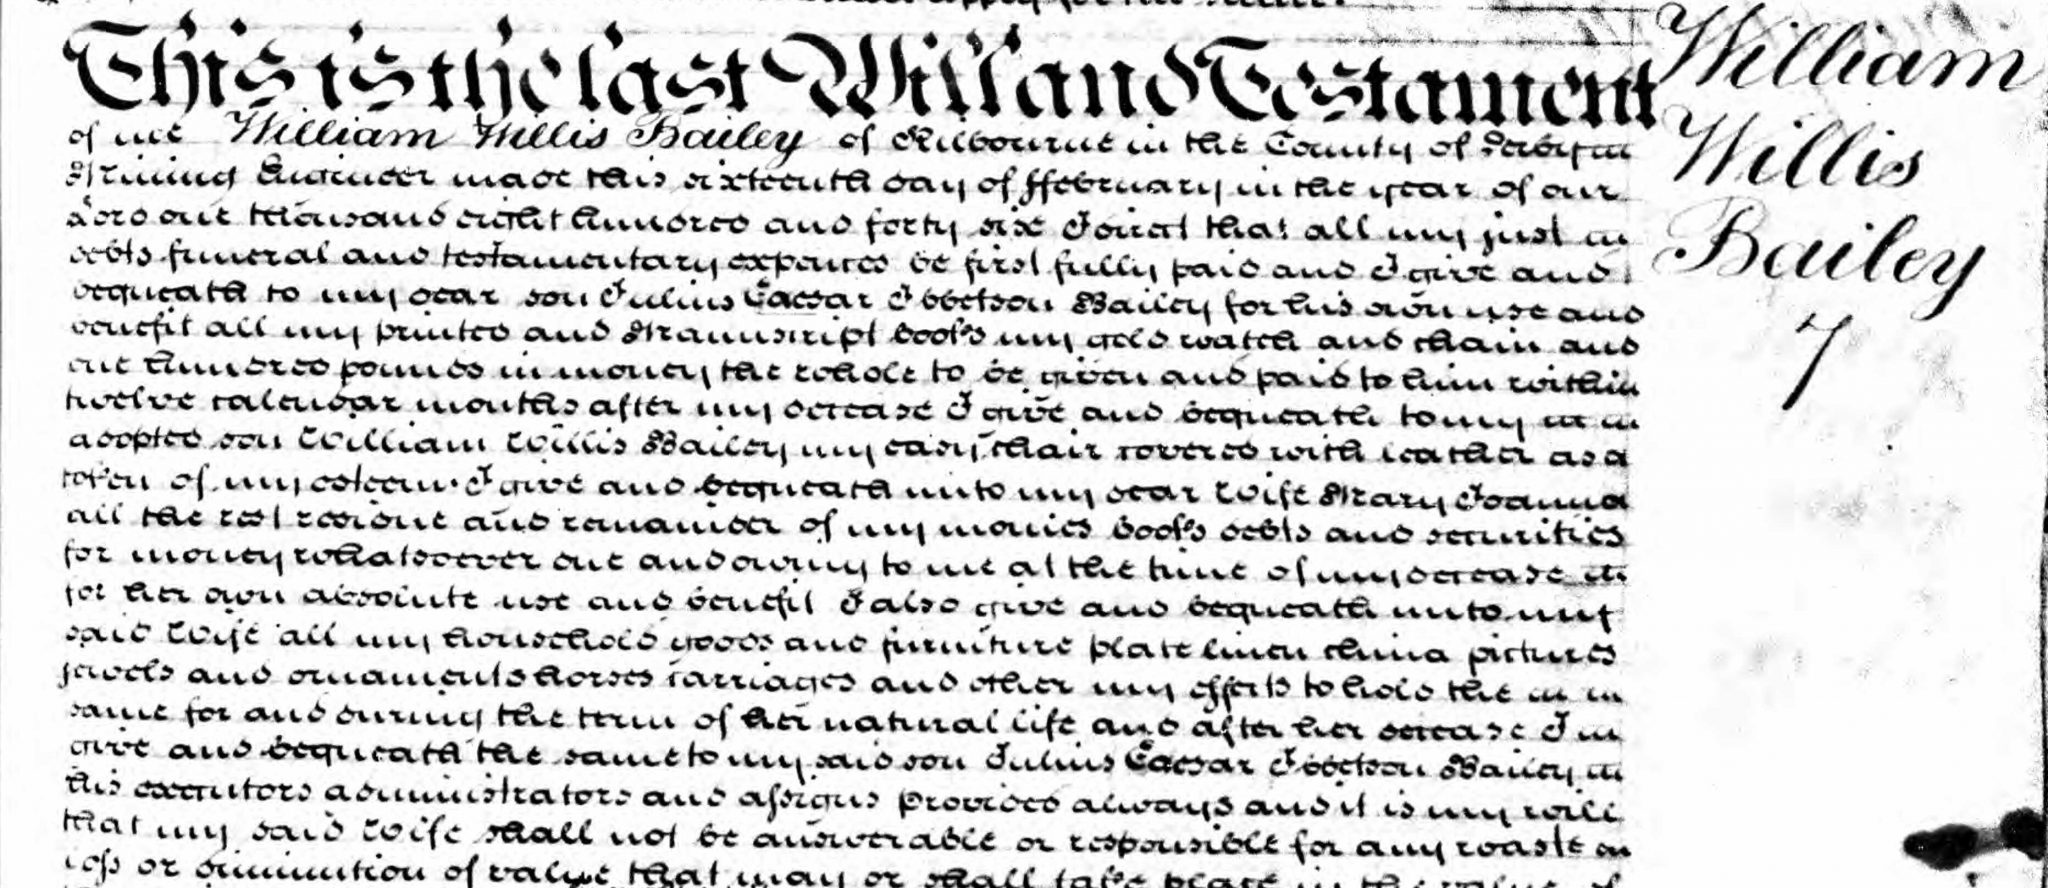 This is the last Will and Testament
of me William Willis Bailey of Kilbourne in the County of Derby
Mining Engineer made this sixteenth day of ffebruary in the year of our
Lord one thousand eight hundred and forty six I direct that all my just
debts funeral and testamentary expences be first fully paid and I give and
bequeath to my dear son Julius Caesar Ibbetson Bailey for his own use and
benefit all my printed and Manuscript books my gold watch and chain and
one hundred pounds in money the whole to be given and paid to him within
twelve calendar months after my decease I give and bequeath to my
adopted son William Willis Bailey my easy chair covered with leather as a
token of my esteem I give and bequeath unto my dear Wife Mary Joanna
all the rest residue and remainder of my monies books debts and securities
for money whatsoever due and owing to me at the time of my decease
for her own absolute use and benefit I also give and bequeath unto my
said Wife all my household goods and furniture plate linen china pictures
jewels and ornaments horses carriages and other my effects to hold the
same for and during the term of her natural life and after her decease I
give and bequeath the same to my said son Julius Caesar Ibbetson Bailey
his executors administrators and assigns provided always and it is my will
that my said Wife shall not be answerable or responsible for any waste or
loss or diminution of value that may or shall take place in the value of
William
Willis
Bailey
7